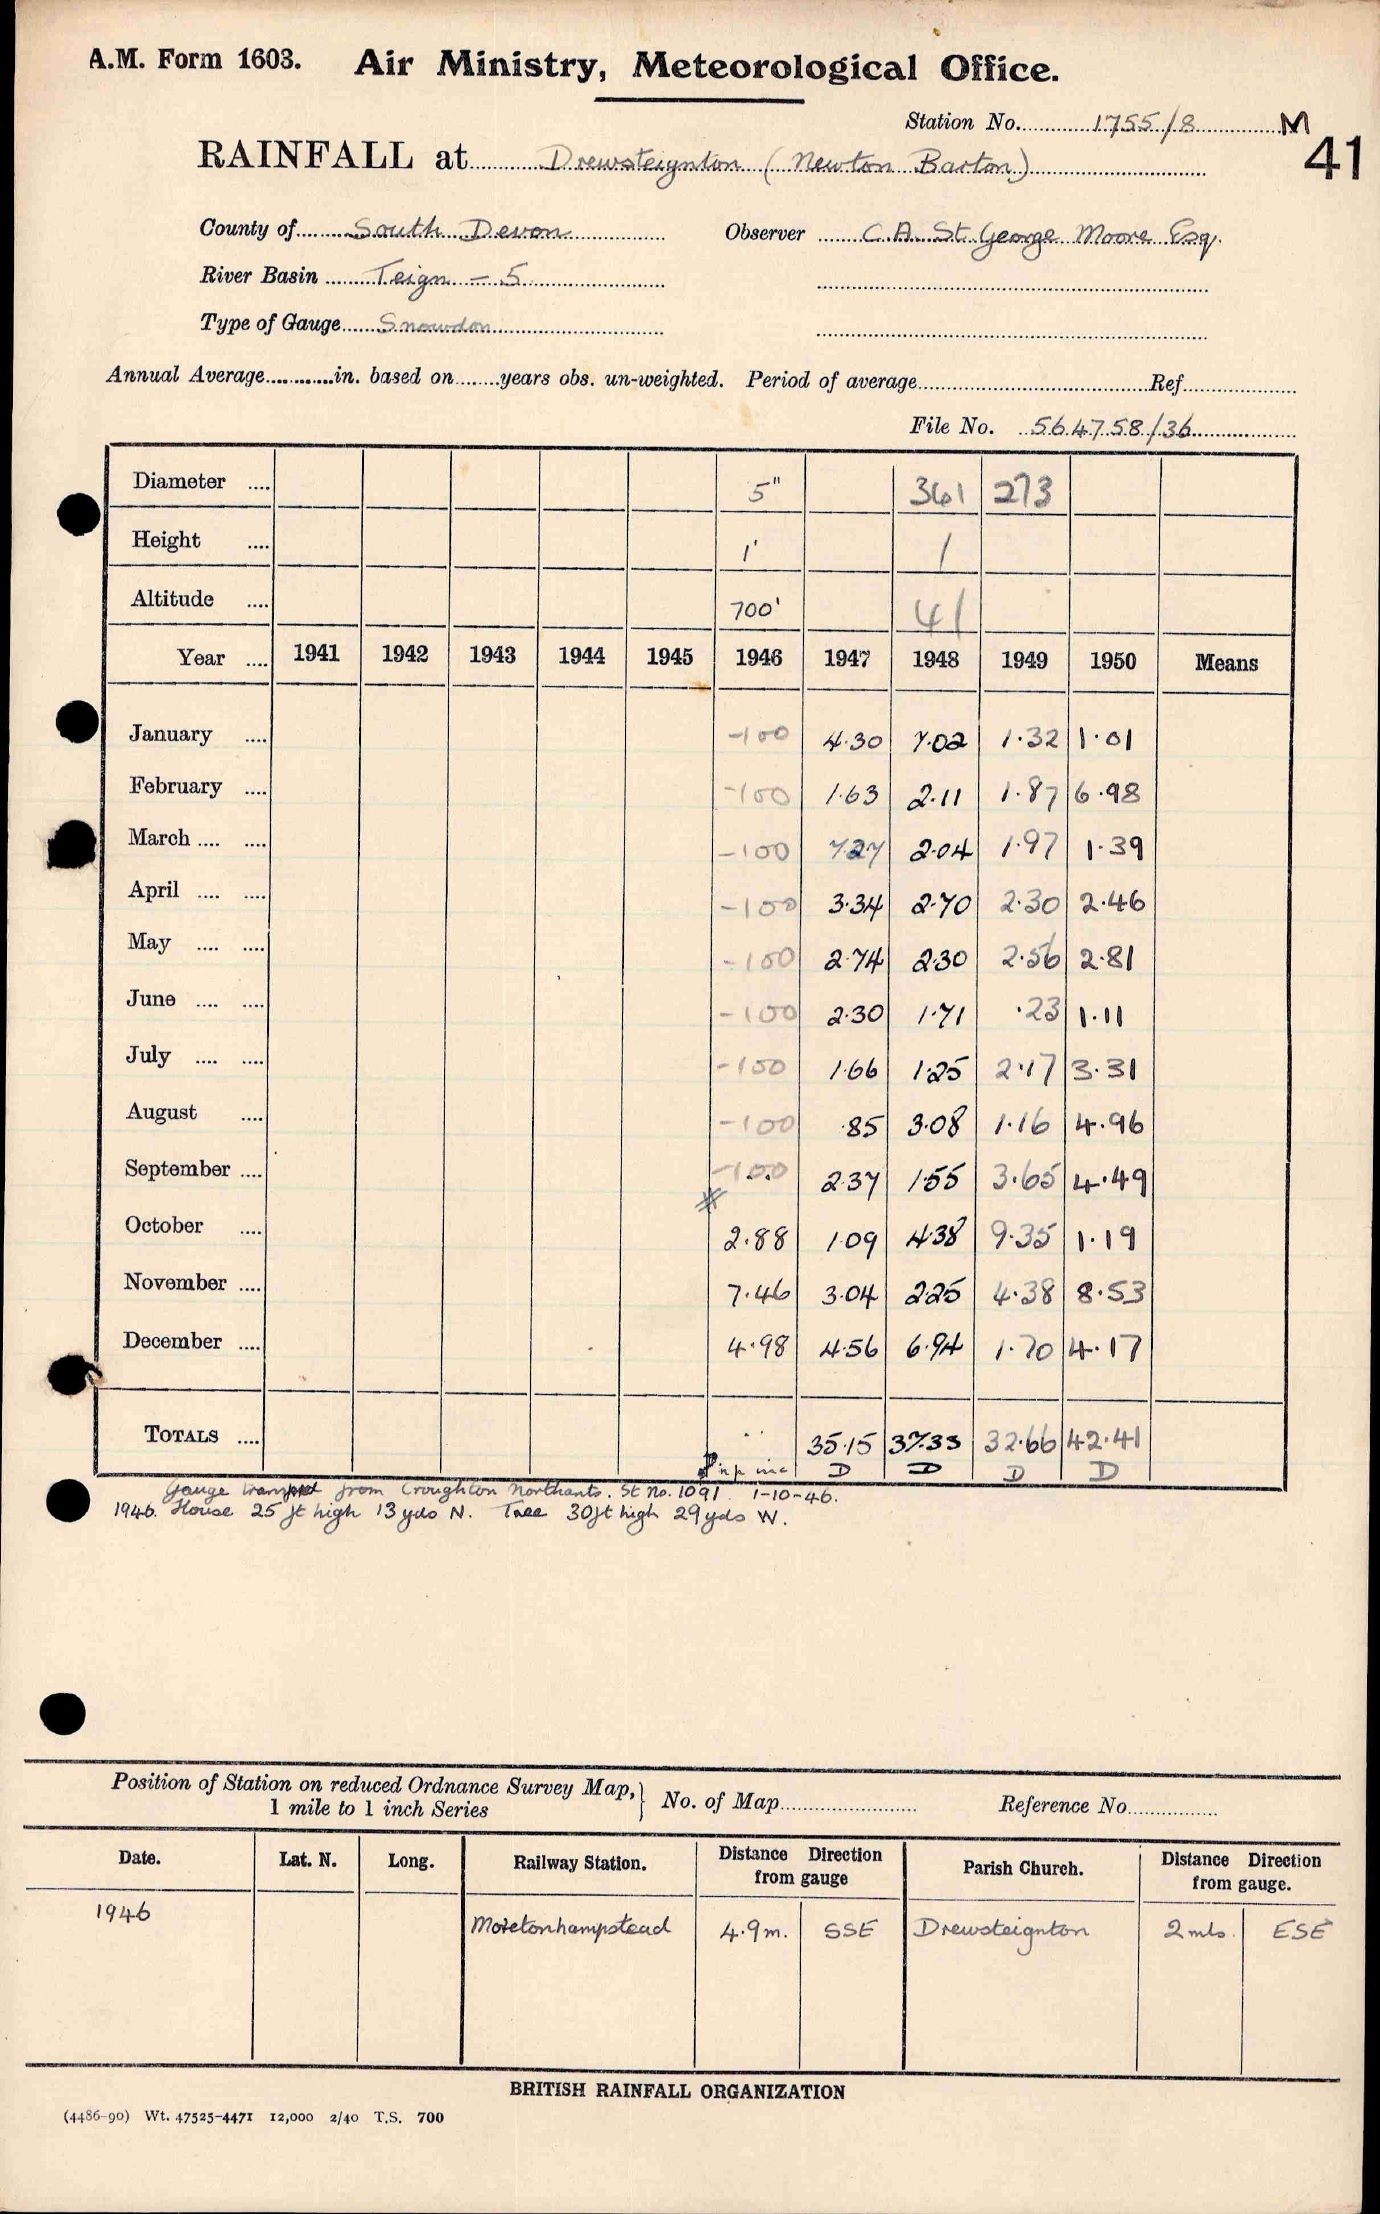 A.M. Form 1603. Air Ministry, Meteorological Office.
Station No. 1755/8 M
41
RAINFALL at Drewsteignton (Newton Barton)
County of South Devon Observer C.A. St. George Moore Esq.
River Basin Teign – 5
Type of Gauge Snowdon
Annual Average............in. based on........years obs. un-weighted. Period of average........Ref........
File No. 564758/36
Diameter .... 5" 361 273
Height .... 1' 1
Altitude .... 700' 41
Year .... 1941 1942 1943 1944 1945 1946 1947 1948 1949 1950 Means
January .... -100 4.30 7.02 1.32 1.01
February .... -100 1.63 2.11 1.87 6.98
March .... .... -100 7.27 2.04 1.97 1.39
April .... .... -100 3.34 2.70 2.30 2.46
May .... .... -100 2.74 2.30 2.56 2.81
June .... .... -100 2.30 1.71 .23 1.11
July .... .... -100 1.66 1.25 2.17 3.31
August .... -100 .85 3.08 1.16 4.96
September .... -100 2.37 1.55 3.65 4.49
October .... 2.88 1.09 4.38 9.35 1.19
November .... 7.46 3.04 2.25 4.38 8.53
December .... 4.98 4.56 6.94 1.70 4.17
TOTALS .... 35.15 37.33 32.66 42.41
D D D D
Gauge from Croughton Northants. St No. 1091 1-10-46.
1946. House 25 ft high 13 yds N. Tree 30ft high 29 yds W.
Position of Station on reduced Ordnance Survey Map, } No. of Map........ Reference No........
1 mile to 1 inch Series
Date. Lat. N. Long. Railway Station. Distance Direction from gauge Parish Church. Distance Direction from gauge.
1946 Moretonhampstead 4.9 m. SSE Drewsteignton 2 mls. ESE
BRITISH RAINFALL ORGANIZATION
(4486-90) Wt. 47525-4471 12,000 2/40 T.S. 700